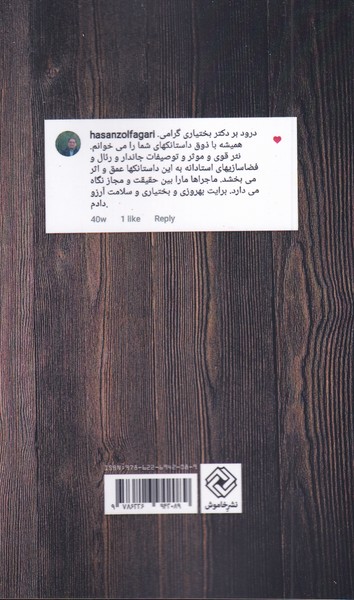 hasanzolfagari درود بر دکتر بختیاری گرامی.
همیشه با ذوق داستانکهای شما را می خوانم.
نثر قوی و موثر و توصیفات جاندار و رئال و
فضاسازیهای استادانه به این داستانکها عمق و اثر
می بخشد. ماجراها مارا بین حقیقت و مجاز نگاه
می دارد. برایت بهروزی و بختیاری و سلامت آرزو
دارم.
40w 1 like Reply
نشرخاموش